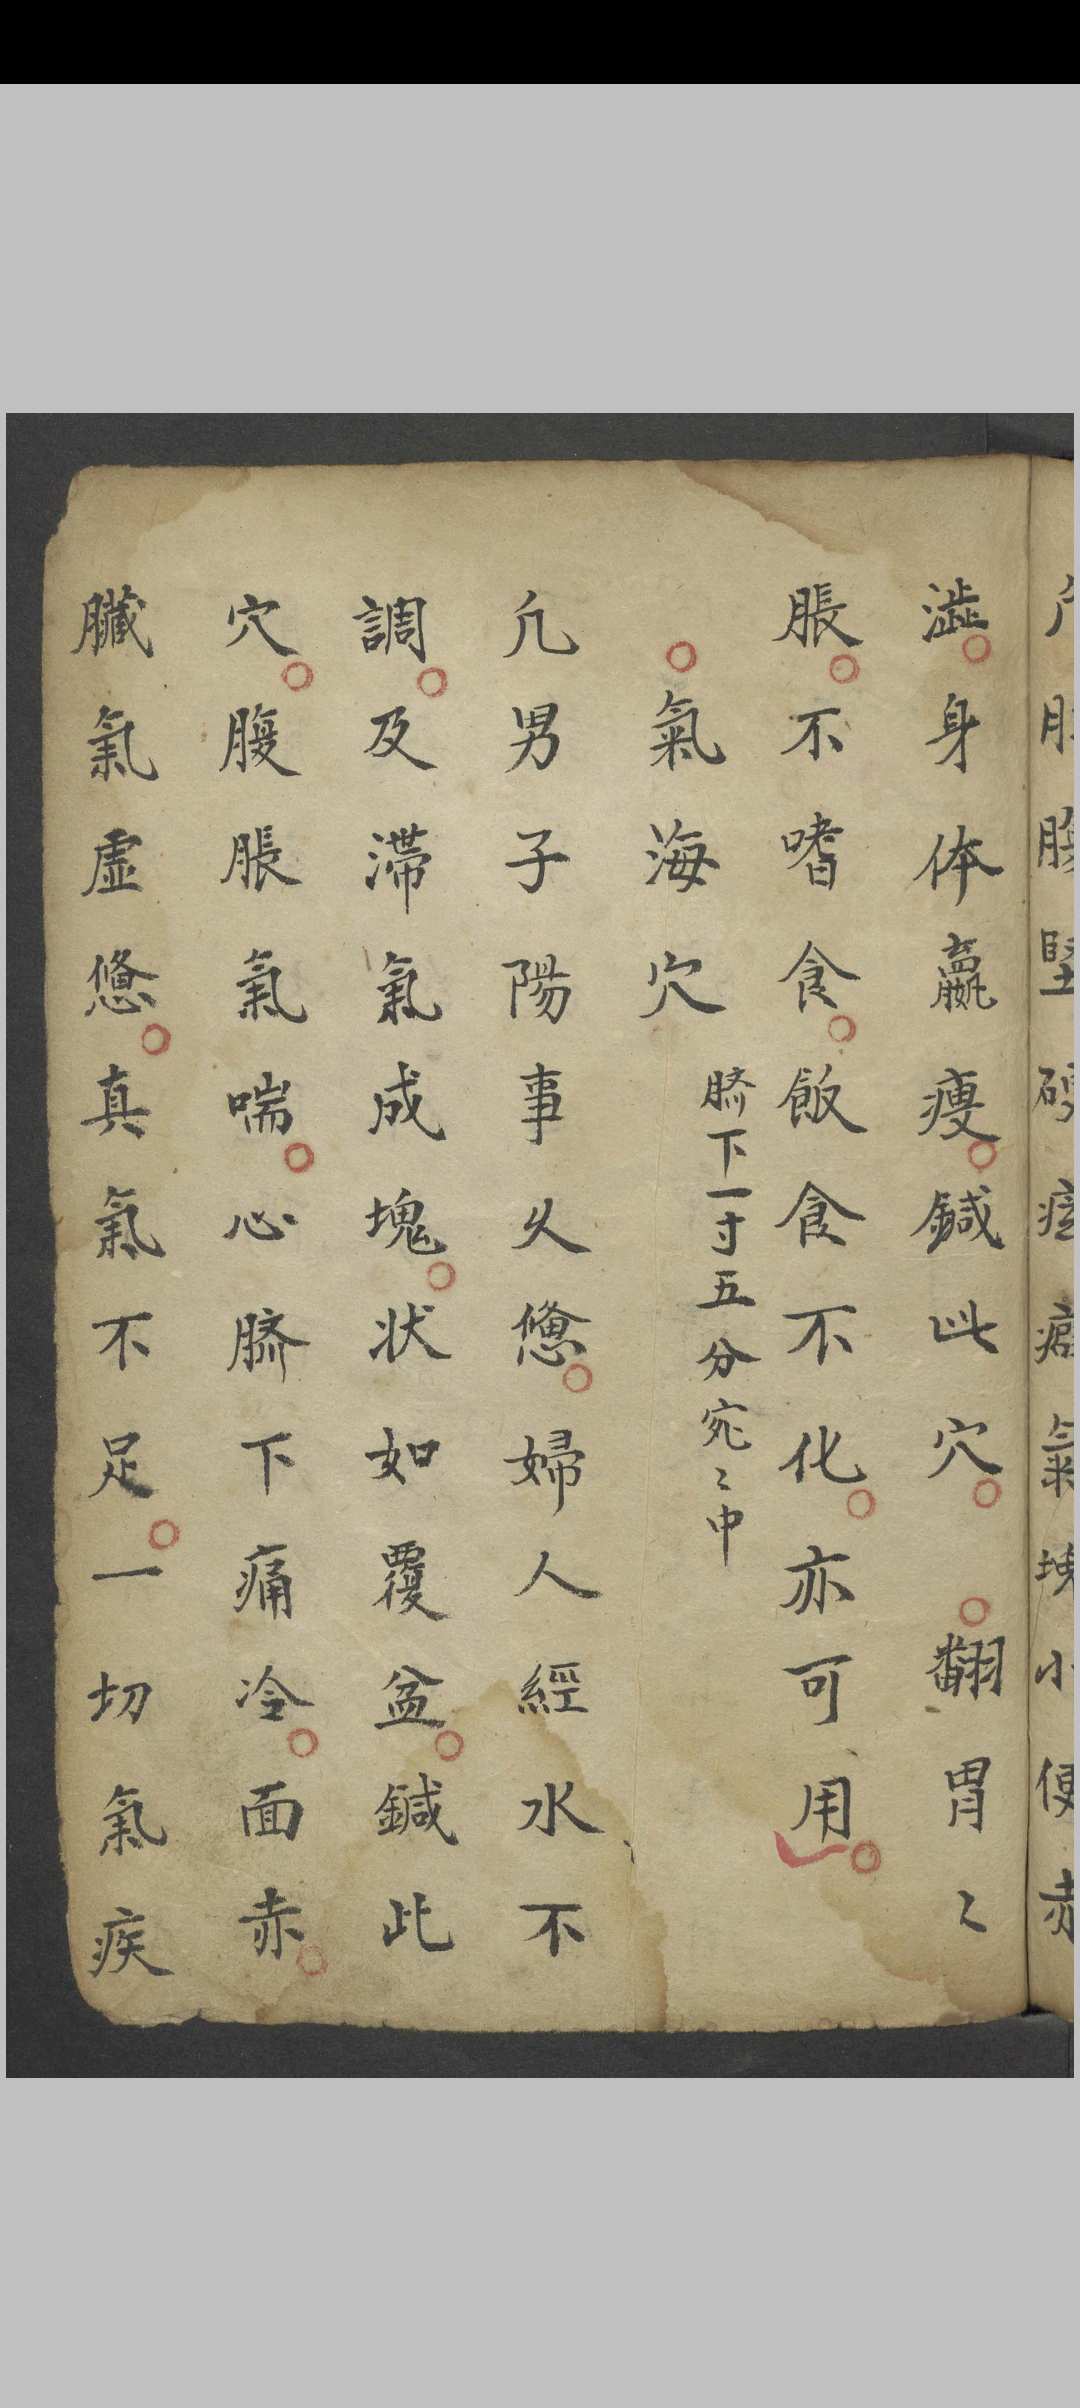 澁身体羸瘦鍼此穴翻胃〻
脹不嗜食飯食不化亦可用
氣海穴
臍下一寸五分宛〻中
凢男子陽事乆憊婦人經水不
調及滞氣成塊状如覆盆鍼此
穴腹脹氣喘心臍下痛冷面赤
臓氣虚憊真氣不足一切氣疾